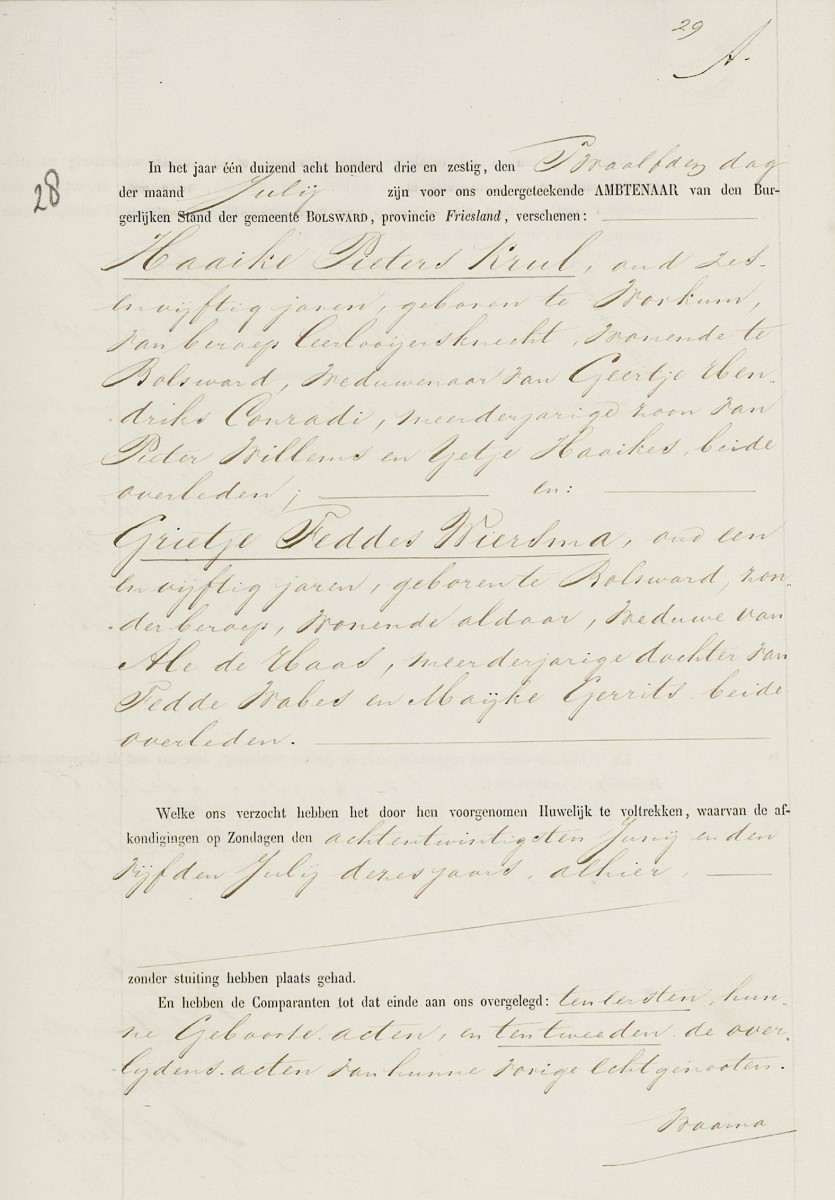 29
A.
28
In het jaar één duizend acht honderd drie en zestig, den Twaalfden dag
der maand Julij zijn voor ons ondergeteekende AMBTENAAR van den Bur-
gerlijken Stand der gemeente BOLSWARD, provincie Friesland, verschenen:
Haaike Pieters Krul, oud zes-
envijftig jaren, geboren te Workum,
van beroep Leerlooijersknecht, wonende te
Bolsward, Weduwenaar van Geertje Hen-
driks Conradi, meerderjarige zoon van
Pieter Willems en Yetje Haaikes, beide
overleden; en:
Grietje Feddes Wiersma, oud een
envijftig jaren, geboren te Bolsward, zon-
der beroep, wonende aldaar, Weduwe van
Ale de Haas, meerderjarige dochter van
Fedde Wabes en Maijke Gerrits beide
overleden.
Welke ons verzocht hebben het door hen voorgenomen Huwelijk te voltrekken, waarvan de af-
kondigingen op Zondagen den achtentwintigsten Junij en den
vijfden Julij dezes jaars, alhier,
zonder stuiting hebben plaats gehad.
En hebben de Comparanten tot dat einde aan ons overgelegd: ten eersten, hun-
ne Geboorte-acten, en ten tweeden de over-
lijdens-acten van hunne vorige echtgenooten.
Waarna